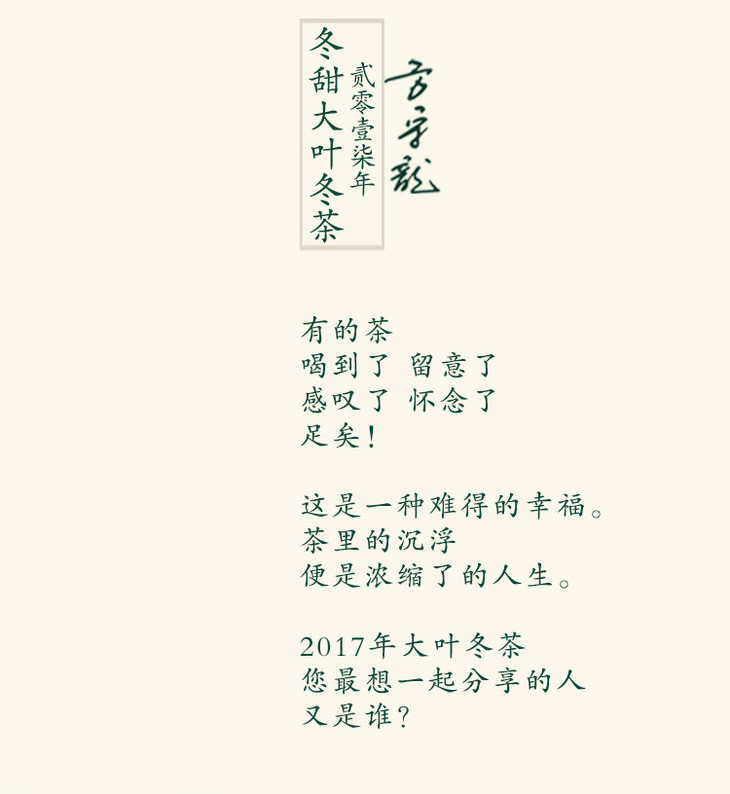 冬甜大叶冬茶
贰零壹柒年
有的茶
喝到了 留意了
感叹了 怀念了
足矣!
这是一种难得的幸福。
茶里的沉浮
便是浓缩了的人生。
2017年大叶冬茶
您最想一起分享的人
又是谁?